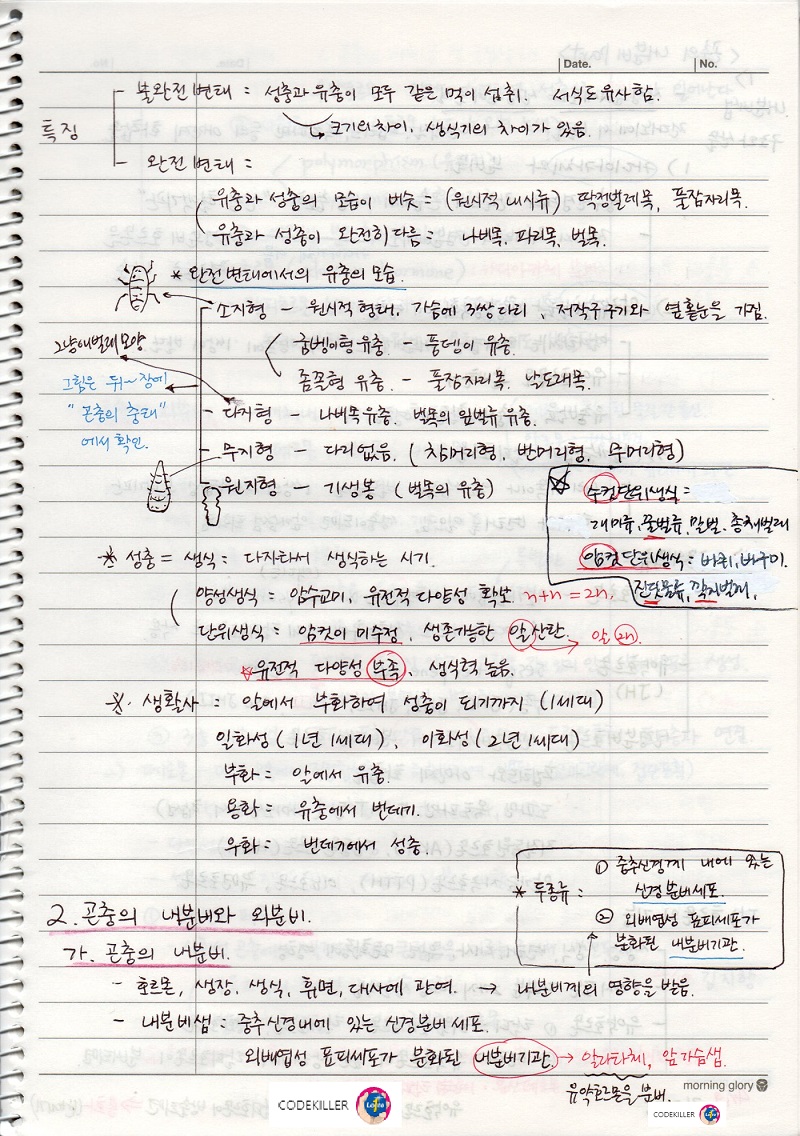 Date. No.
특징
불완전변태 = 성충과 유충이 모두 같은 먹이 섭취. 서식도 유사함.
↳ 크기의 차이, 생식기의 차이가 있음.
완전변태 =
유충과 성충의 모습이 비슷 = (원시적 내시류) 딱정벌레목, 풀잠자리목.
유충과 성충이 완전히 다름 = 나비목, 파리목, 벌목.
* 완전변태에서의 유충의 모습.
소지형 - 원시적 형태, 가슴에 3쌍 다리, 저작구기와 옆홑눈을 가짐.
굼벵이형 유충 - 풍뎅이 유충.
좀꼴형 유충. - 풀잠자리목. 날도래목.
그냥 애벌레 모양
그림은 뒤~장에
"곤충의 충태"
에서 확인.
다지형 - 나비목유충. 벌목의 잎벌류 유충.
무지형 - 다리없음. ( 차머리형, 반머리형, 무머리형)
원지형 - 기생봉 (벌목의 유충)
☆ 수컷단위생식 =
깨미류, 꿀벌류, 말벌, 총채벌레
암컷단위생식 = 바퀴, 바구미.
진딧물류, 깍지벌레,
* 성충 = 생식 = 다자라서 생식하는 시기.
양성생식 = 암수교미, 유전적 다양성 확보. n+n = 2n.
단위생식 = 암컷이 미수정, 생존가능한 알산란. → 알 2n.
*유전적 다양성 부족, 생식력 높음.
* 생활사 = 알에서 부화하여 성충이 되기까지 (1세대)
일화성 (1년 1세대), 이화성 (2년 1세대)
부화 = 알에서 유충.
용화 = 유충에서 번데기.
우화 = 번데기에서 성충.
* 두종류 =
① 중추신경계 내에 있는
신경분비세포.
② 외배엽성 표피세포가
분화된 내분비기관.
2. 곤충의 내분비와 외분비.
가. 곤충의 내분비.
- 호르몬, 생장, 생식, 휴면, 대사에 관여. → 내분비계의 영향을 받음.
- 내분비샘 = 중추신경내에 있는 신경분비세포.
외배엽성 표피세포가 분화된 내분비기관 → 알라타체, 앞가슴샘.
유약호르몬을 분비.
morning glory
CODEKILLER
CODEKILLER